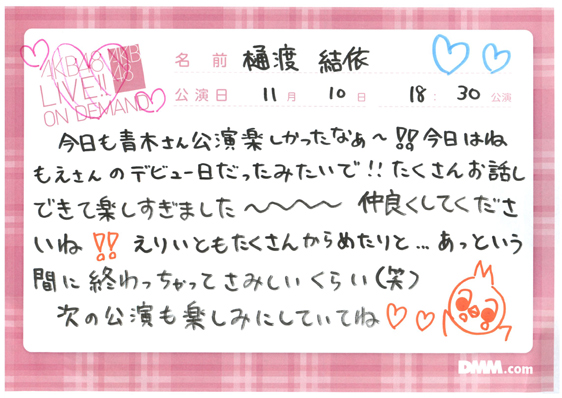 AKB48 AKB48
LIVE!!
ON DEMAND
名前 樋渡 結依
公演日 11月 10日 18:30公演
今日も青木さん公演楽しかったなぁ〜!!今日はね
もえさんのデビュー日だったみたいで!!たくさんお話し
できて楽しすぎました〜〜〜〜 仲良くしてくださ
いね!! えりぃともたくさんからめたりと...あっという
間に終わっちゃってさみしいくらい(笑)
次の公演も楽しみにしていてね♡♡
DMM.com